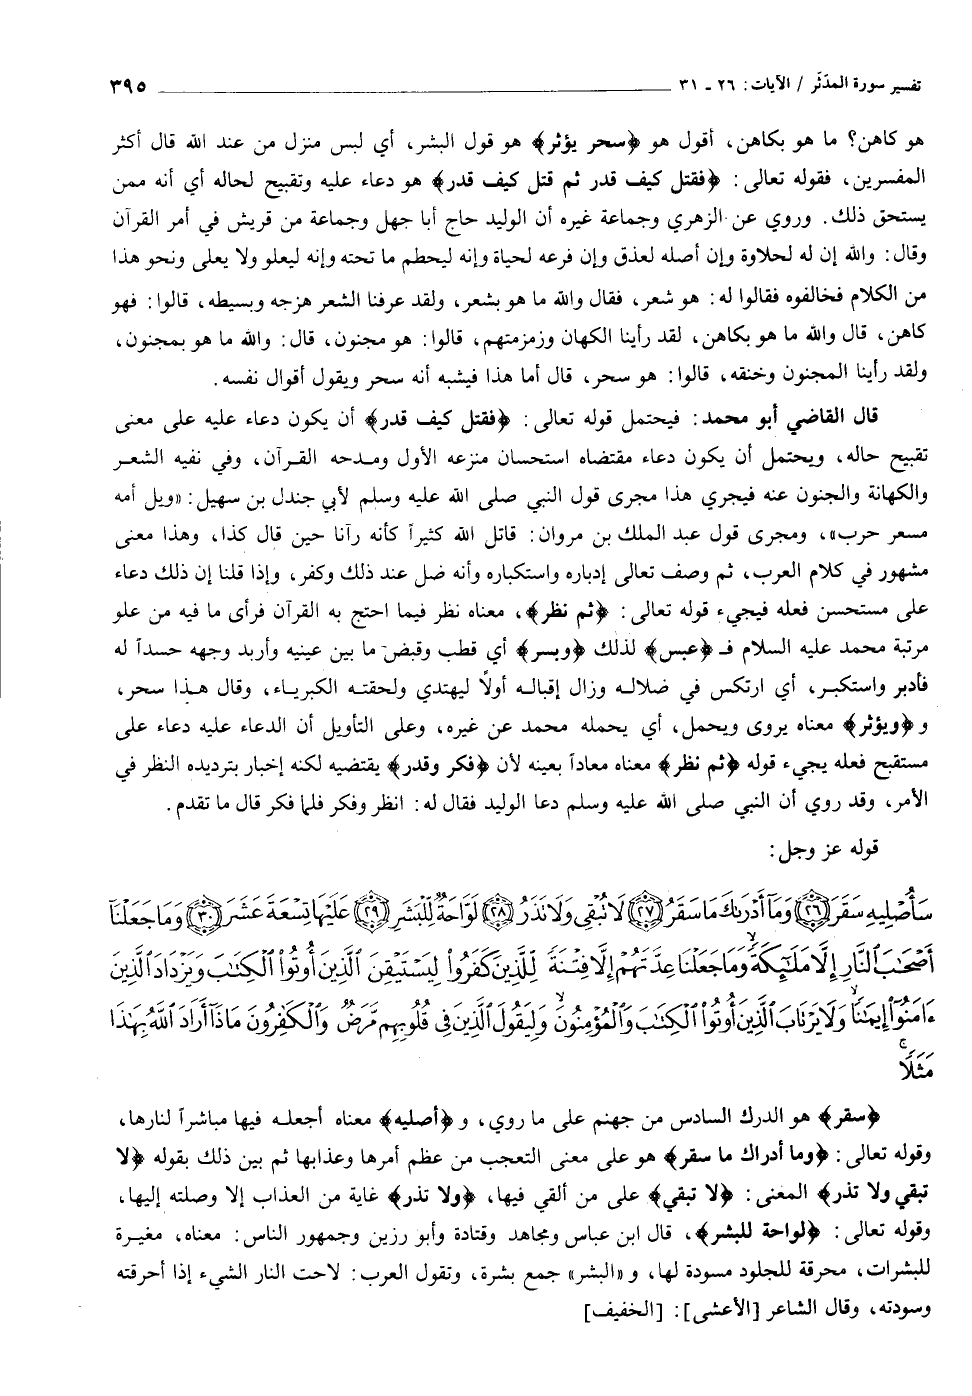 تفسير سورة المدّثر / الآيات : ٢٦ ـ ٣١ ٣٩٥
هو كاهن؟ ما هو بكاهن، أقول هو ﴿سحر يؤثر﴾ هو قول البشر، أي لبس منزل من عند الله قال أكثر
المفسرين، فقوله تعالى : ﴿فقتل كيف قدر ثم قتل كيف قدر﴾ هو دعاء عليه وتقبيح لحاله أي أنه ممن
يستحق ذلك. وروي عن الزهري وجماعة غيره أن الوليد حاج أبا جهل وجماعة من قريش في أمر القرآن
وقال : والله إن له لحلاوة وإن أصله لعذق وإن فرعه لحياة وإنه ليحطم ما تحته وإنه ليعلو ولا يعلى ونحو هذا
من الكلام فخالفوه فقالوا له : هو شعر، فقال والله ما هو بشعر، ولقد عرفنا الشعر هزجه وبسيطه، قالوا : فهو
كاهن، قال والله ما هو بكاهن، لقد رأينا الكهان وزمزمتهم، قالوا : هو مجنون، قال : والله ما هو بمجنون،
ولقد رأينا المجنون وخنقه، قالوا : هو سحر، قال أما هذا فيشبه أنه سحر ويقول أقوال نفسه.
قال القاضي أبو محمد : فيحتمل قوله تعالى : ﴿فقتل كيف قدر﴾ أن يكون دعاء عليه على معنى
تقبيح حاله، ويحتمل أن يكون دعاء مقتضاه استحسان منزعه الأول ومدحه القرآن، وفي نفيه الشعر
والكهانة والجنون عنه فيجري هذا مجرى قول النبي صلى الله عليه وسلم لأبي جندل بن سهيل : «ويل أمه
مسعر حرب»، ومجرى قول عبد الملك بن مروان : قاتل الله كثيراً كأنه رآنا حين قال كذا، وهذا معنى
مشهور في كلام العرب، ثم وصف تعالى إدباره واستكباره وأنه ضل عند ذلك وكفر، وإذا قلنا إن ذلك دعاء
على مستحسن فعله فيجيء قوله تعالى : ﴿ثم نظر﴾، معناه نظر فيما احتج به القرآن فرأى ما فيه من علو
مرتبة محمد عليه السلام فـ ﴿عبس﴾ لذلك ﴿وبسر﴾ أي قطب وقبض ما بين عينيه وأربد وجهه حسداً له
فأدبر واستكبر، أي ارتكس في ضلاله وزال إقباله أولًا ليهتدي ولحقته الكبرياء، وقال هذا سحر،
و ﴿ويؤثر﴾ معناه يروى ويحمل، أي يحمله محمد عن غيره، وعلى التأويل أن الدعاء عليه دعاء على
مستقبح فعله يجيء قوله ﴿ثم نظر﴾ معناه معاداً بعينه لأن ﴿فكر وقدر﴾ يقتضيه لكنه إخبار بترديده النظر في
الأمر، وقد روي أن النبي صلى الله عليه وسلم دعا الوليد فقال له : انظر وفكر فلما فكر قال ما تقدم.
قوله عز وجل :
سَأُصْلِيهِ سَقَرَ ﴿٢٦﴾ وَمَا أَدْرَىٰكَ مَا سَقَرُ ﴿٢٧﴾ لَا تُبْقِى وَلَا تَذَرُ ﴿٢٨﴾ لَوَّاحَةٌ لِّلْبَشَرِ ﴿٢٩﴾ عَلَيْهَا تِسْعَةَ عَشَرَ ﴿٣٠﴾ وَمَا جَعَلْنَا
أَصْحَٰبَ ٱلنَّارِ إِلَّا مَلَٰٓئِكَةً ۙ وَمَا جَعَلْنَا عِدَّتَهُمْ إِلَّا فِتْنَةً لِّلَّذِينَ كَفَرُوا۟ لِيَسْتَيْقِنَ ٱلَّذِينَ أُوتُوا۟ ٱلْكِتَٰبَ وَيَزْدَادَ ٱلَّذِينَ
ءَامَنُوٓا۟ إِيمَٰنًا ۙ وَلَا يَرْتَابَ ٱلَّذِينَ أُوتُوا۟ ٱلْكِتَٰبَ وَٱلْمُؤْمِنُونَ ۙ وَلِيَقُولَ ٱلَّذِينَ فِى قُلُوبِهِم مَّرَضٌ وَٱلْكَٰفِرُونَ مَاذَآ أَرَادَ ٱللَّهُ بِهَٰذَا
مَثَلًا ۚ
﴿سقر﴾ هو الدرك السادس من جهنم على ما روي، و ﴿أصليه﴾ معناه أجعله فيها مباشراً لنارها،
وقوله تعالى : ﴿وما أدراك ما سقر﴾ هو على معنى التعجب من عظم أمرها وعذابها ثم بين ذلك بقوله ﴿لا
تبقي ولا تذر﴾ المعنى : ﴿لا تبقي﴾ على من ألقي فيها، ﴿ولا تذر﴾ غاية من العذاب إلا وصلته إليها،
وقوله تعالى : ﴿لواحة للبشر﴾، قال ابن عباس ومجاهد وقتادة وأبو رزين وجمهور الناس : معناه، مغيرة
للبشرات، محرقة للجلود مسودة لها، و «البشر» جمع بشرة، وتقول العرب : لاحت النار الشيء إذا أحرقته
وسودته، وقال الشاعر [الأعشى] : [الخفيف]